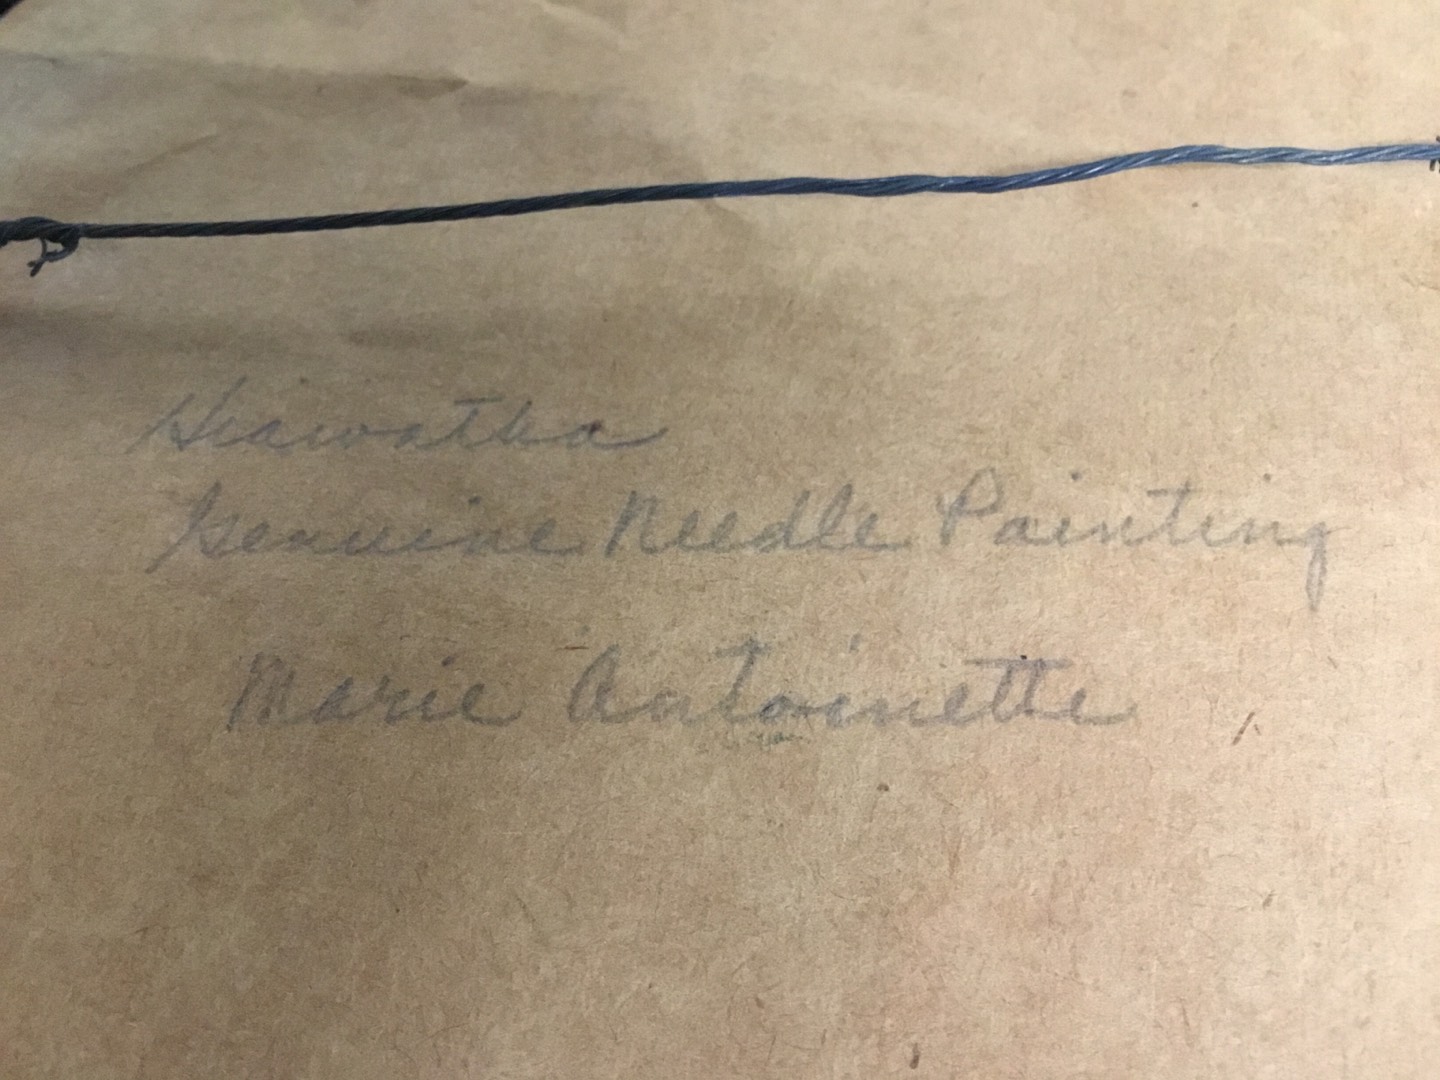 Hiawatha
Genuine Needle Painting
Marie Antoinette